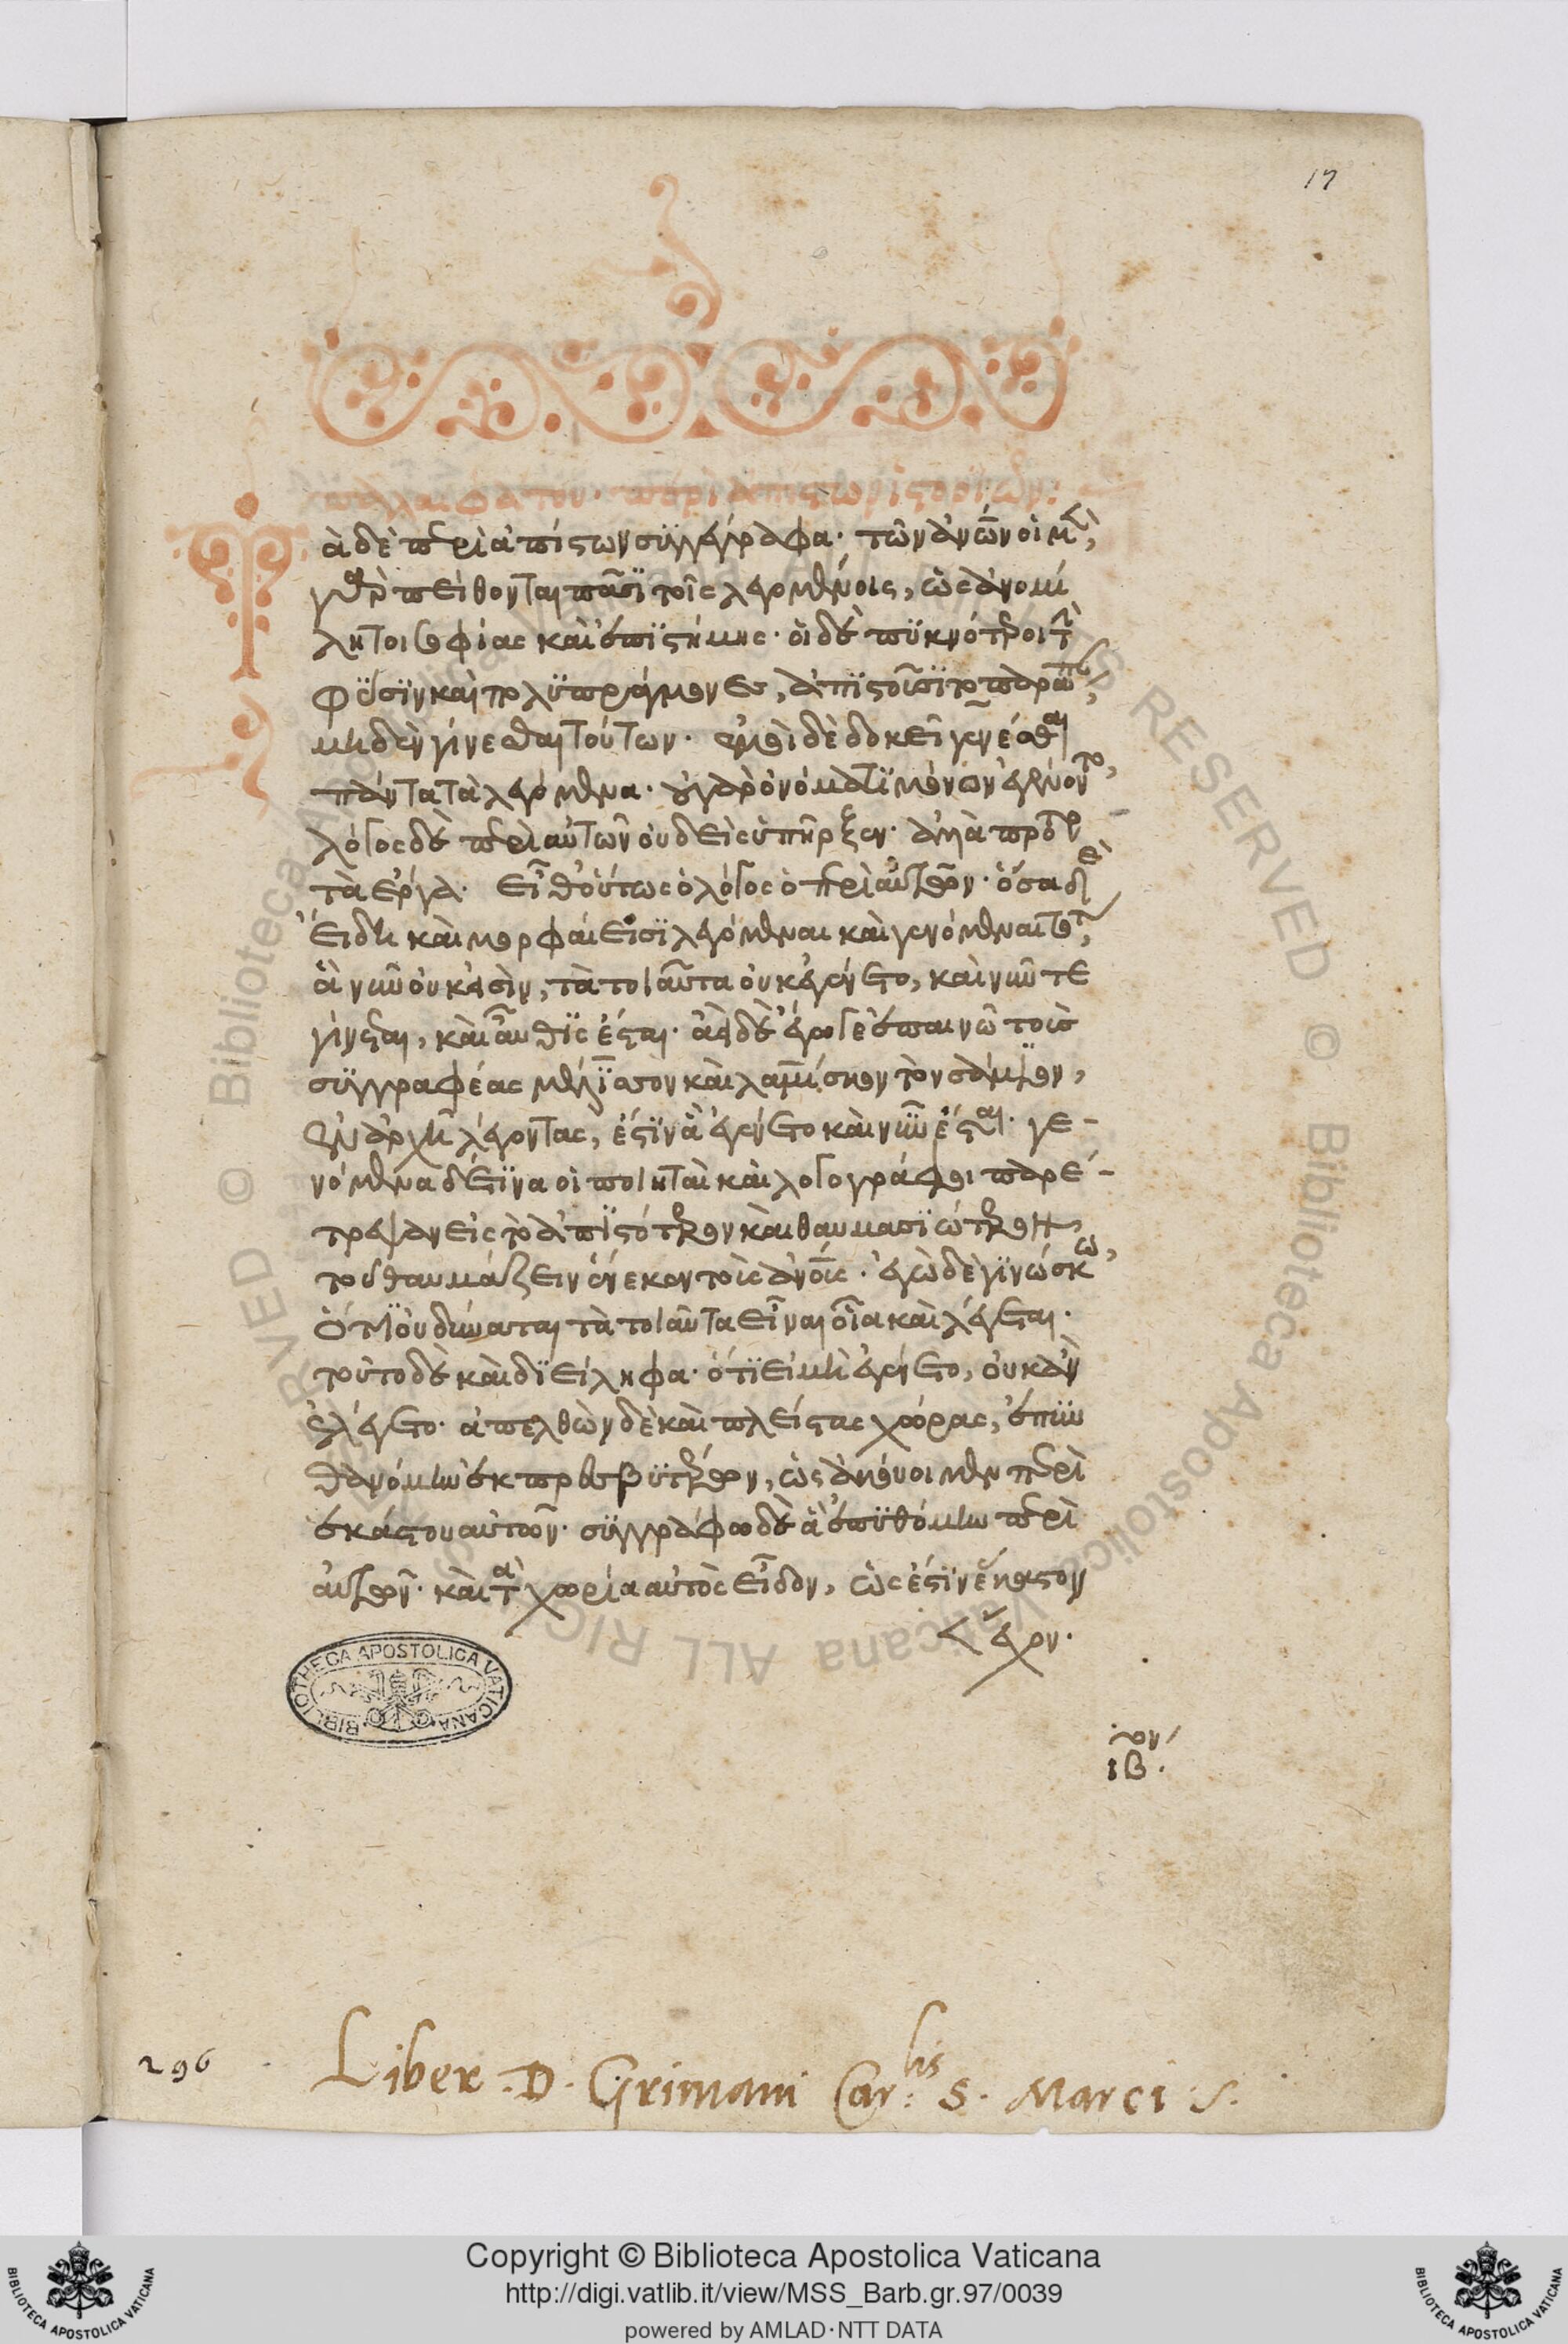 17
παλαιφάτου· περὶ ἀπίστων ἱστοριῶν:
Τὰ δὲ περὶ ἀπίστων συγγέγραφα· τῶν ἀνων οἱ μ(ὲν)
γὰρ πείθονται πᾶσι τοῖς λεγομένοις, ὡς ἀνομί
λητοι σοφίας καὶ ἐπιστήμης· οἱ δὲ πυκνότεροι τὴν
φύσιν καὶ πολυπράγμονες, ἀπιστοῦσι τὸ παράπαν
μηδὲν γίνεσθαι τούτων· ἐμοὶ δὲ δοκεῖ γενέσθαι
πάντα τὰ λεγόμενα· οὐ γὰρ ὀνόματι μόνον ἐγένοντο,
λόγος δὲ περὶ αὐτῶν οὐδεὶς ὑπῆρξεν· ἀλλὰ πρότερ
τὰ ἔργα· εἶθ' οὕτως ὁ λόγος ὁ περὶ αὐτῶν· ὅσα δὲ
εἴδη καὶ μορφαί εἰσι λεγόμεναι καὶ γενόμεναι τότε,
ἃ νῦν οὐκ εἰσὶν, τὰ τοιαῦτα οὐκ ἐγένετο, καὶ νῦν τε
γίνεται, καὶ αὖθις ἔσται· ἀεὶ δὲ ἔγωγε ἐπαινῶ τοὺς
συγγραφέας μέλισσον καὶ λαμίσκον τὸν σάμιον,
ἐν ἀρχῇ λέγοντας, ἔστιν ἃ ἐγένετο καὶ νῦν ἔσται· γε-
νόμενα δέ τινα οἱ ποιηταὶ καὶ λογογράφοι παρέ-
τρεψαν εἰς τὸ ἀπιστότερον καὶ θαυμασιώτερον
τοῦ θαυμάζειν ἕνεκεν τοὺς ἀνους· ἐγὼ δὲ γινώσκω,
ὅτι οὐ δύναται τὰ τοιαῦτα εἶναι οἷα καὶ λέγεται·
τοῦτο δὲ καὶ διείληφα· ὅτι εἰ μὴ ἐγένετο, οὐκ ἂν
ἐλέγετο· ἀπελθὼν δὲ καὶ πλείστας χώρας, ἐπυν
θανόμην ἐκ πρεσβυτέρων, ὡς ἀκούοιμεν περὶ
ἑκάστου αὐτῶν· συγγράφω δὲ ἃ ἐπυθόμην περὶ
αὐτῶν· καὶ τὰ χωρία αὐτὸς εἶδον, ὡς ἔστιν ἕκαστον
ἔχον·
ιβ·
296
Liber .D. Grimani Car:lis S. Marci
BIBLIOTHECA APOSTOLICA VATICANA
Copyright © Biblioteca Apostolica Vaticana
http://digi.vatlib.it/view/MSS_Barb.gr.97/0039
powered by AMLAD·NTT DATA